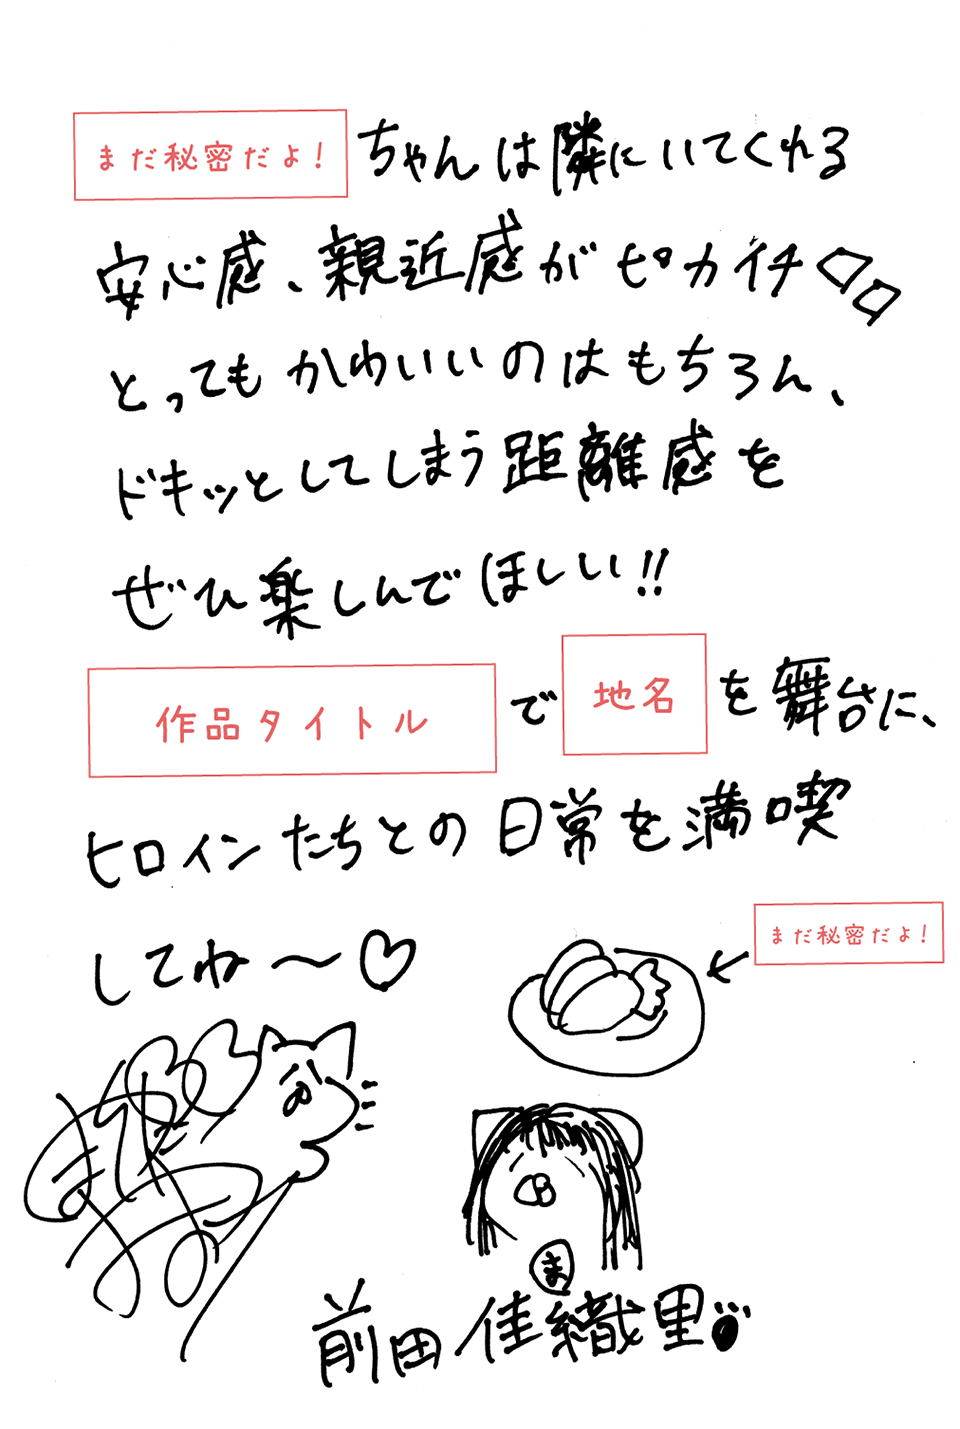 まだ秘密だよ！ちゃんは隣にいてくれる
安心感、親近感がピカイチ
とってもかわいいのはもちろん、
ドキッとしてしまう距離感を
ぜひ楽しんでほしい!!
作品タイトルで地名を舞台に、
ヒロインたちとの日常を満喫
してね〜♡
まだ秘密だよ！
ま
前田佳織里